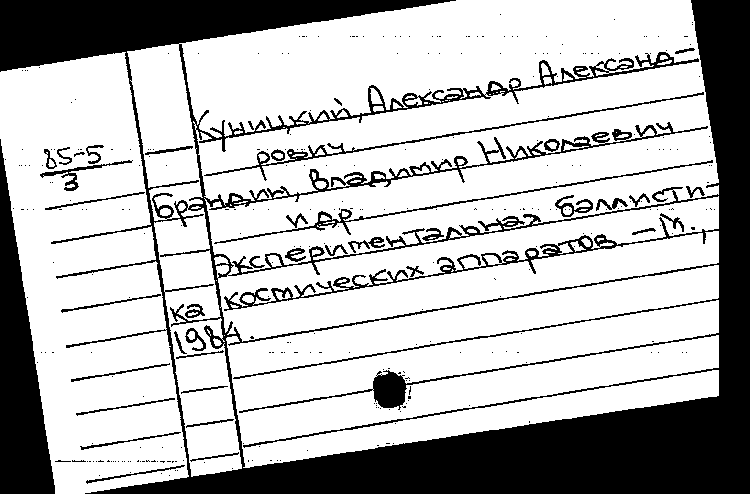 Куницкий, Александр Александ-
рович.
85-5
3
Брандин, Владимир Николаевич
и др.
Экспериментальная баллисти-
ка космических аппаратов. - М.,
1984.